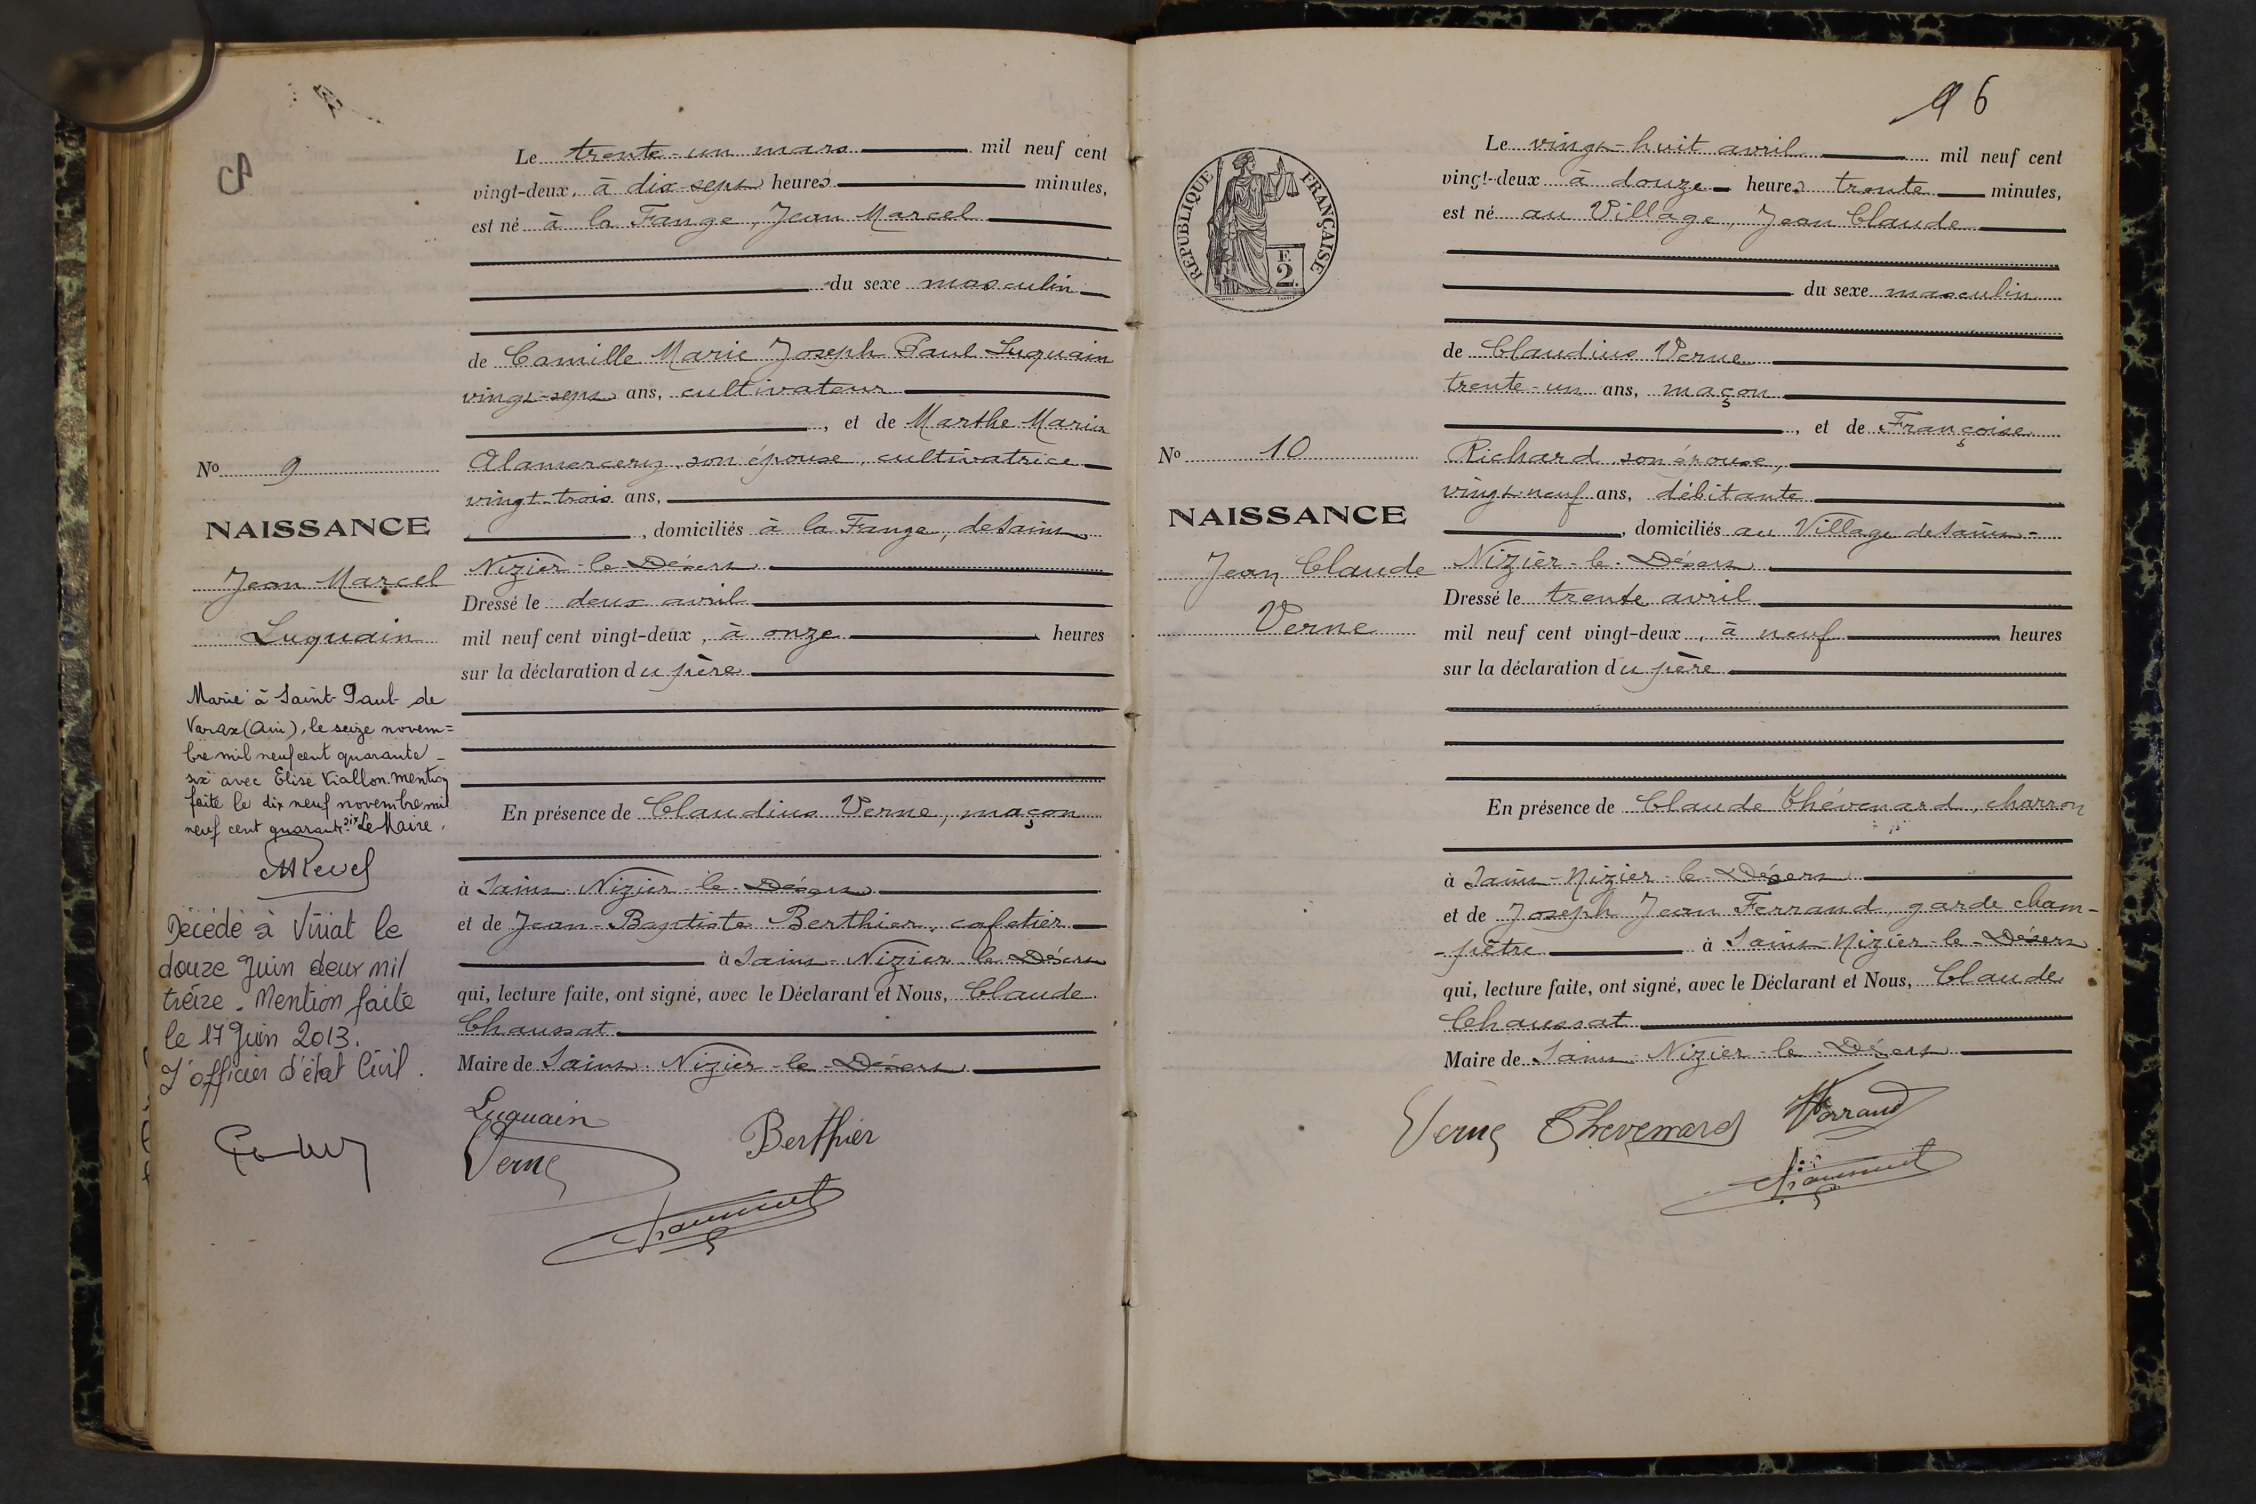 Le trente-un mars mil neuf cent
vingt-deux, à dix-sept heures minutes,
est né à la Fange, Jean Marcel
du sexe masculin
de Camille Marie Joseph Paul Luquain
vingt-sept ans, cultivateur
, et de Marthe Maria
Alamercery, son épouse, cultivatrice
vingt-trois ans,
, domiciliés à la Fange, de Saint
Nizier-le-Désert
Dressé le deux avril
mil neuf cent vingt-deux, à onze heures
sur la déclaration du père
En présence de Claudius Verne, maçon
à Saint-Nizier-le-Désert
et de Jean-Baptiste Berthier, cafetier
à Saint-Nizier-le-Désert
qui, lecture faite, ont signé, avec le Déclarant et Nous, Claude
Chaussat
Maire de Saint-Nizier-le-Désert
Luquain
Verne
Berthier
No 9
NAISSANCE
Jean Marcel
Luquain
Marié à Saint-Paul-de
Varax (Ain), le seize novem=
bre mil neuf cent quarante-
six avec Elise Viallon. mention
faite le dix neuf novembre mil
neuf cent quarante six Le Maire.
Décédé à Viriat le
douze Juin deux mil
treize. Mention faite
le 17 Juin 2013.
L'officier d'état Civil.
96
RÉPUBLIQUE FRANÇAISE
F.
2.
Le vingt-huit avril mil neuf cent
vingt-deux à douze heures trente minutes,
est né au Village, Jean Claude
du sexe masculin
de Claudius Verne
trente-un ans, maçon
, et de Françoise
Richard son épouse,
vingt-neuf ans, débitante
, domiciliés au Village de Saint-
Nizier-le-Désert
Dressé le trente avril
mil neuf cent vingt-deux, à neuf heures
sur la déclaration du père
En présence de Claude Thévenard, charron
à Saint-Nizier-le-Désert
et de Joseph Jean Ferrand, garde cham-
-pêtre à Saint-Nizier-le-Désert
qui, lecture faite, ont signé, avec le Déclarant et Nous, Claude
Chaussat
Maire de Saint-Nizier-le-Désert
Verne Thevenard Ferrand
No 10
NAISSANCE
Jean Claude
Verne